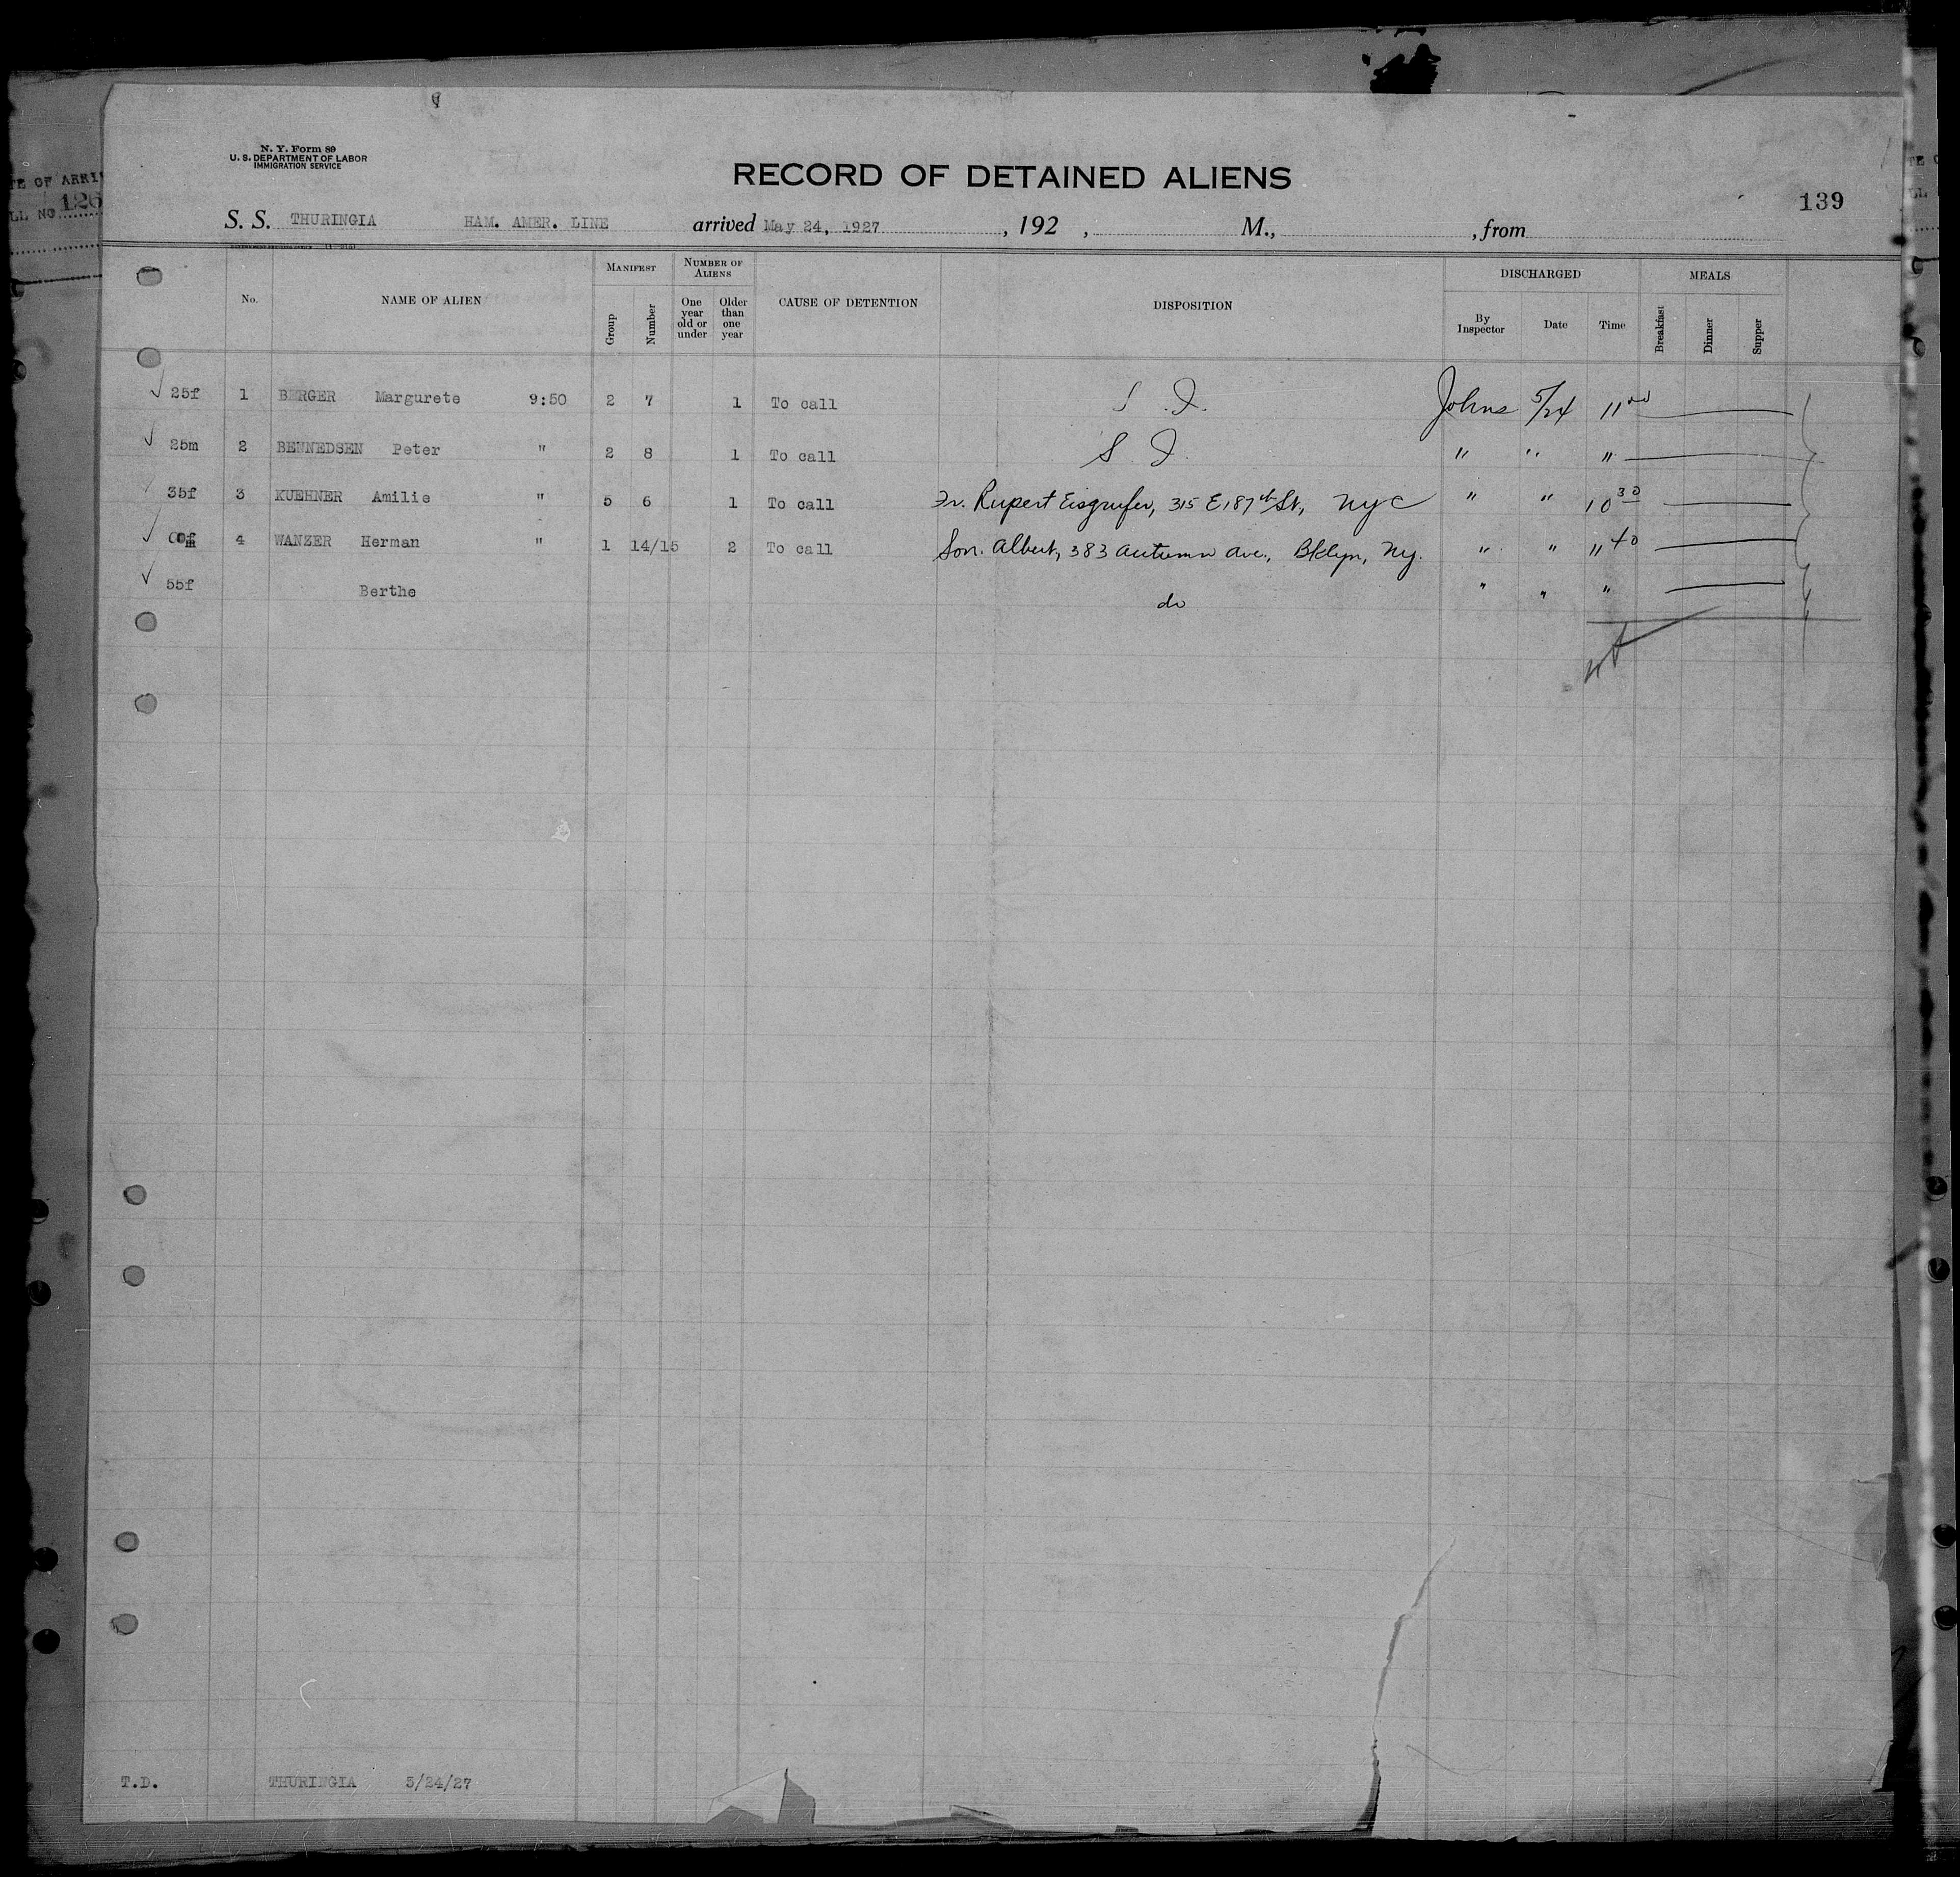 N. Y. Form 89
U. S. DEPARTMENT OF LABOR
IMMIGRATION SERVICE
RECORD OF DETAINED ALIENS
139
TE OF ARRI
LL NO 126
S. S. THURINGIA HAM. AMER. LINE arrived May 24, 1927 , 192 , M., , from
No. NAME OF ALIEN MANIFEST NUMBER OF ALIENS CAUSE OF DETENTION DISPOSITION DISCHARGED MEALS
Group Number One year old or under Older than one year By Inspector Date Time Breakfast Dinner Supper
25f 1 BERGER Margurete 9:50 2 7 1 To call S. I. Johns 5/24 11 00
25m 2 BENNEDSEN Peter " 2 8 1 To call S I. " " "
35f 3 KUEHNER Amilie " 5 6 1 To call Fr. Rupert 315 E 187th St, NYC " " 10 30
4 WANZER Herman " 1 14/15 2 To call Son. Albert, 383 Autumn Ave., Bklyn, Ny. " " " 40
55f Berthe do " " "
T.D. THURINGIA 5/24/27